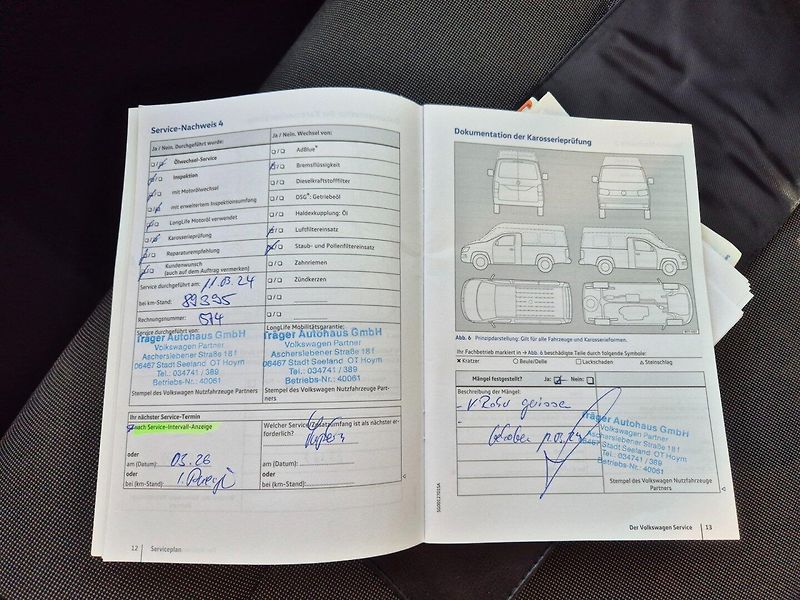 Service-Nachweis 4
Ja / Nein. Durchgeführt wurde:
Ölwechsel-Service
Inspektion
mit Motorölwechsel
mit erweitertem Inspektionsumfang
LongLife Motoröl verwendet
Karosserieprüfung
Reparaturempfehlung
Kundenwunsch
(auch auf dem Auftrag vermerken)
Service durchgeführt am: 11.03.24
bei km-Stand: 89395
Rechnungsnummer: 514
Service durchgeführt von:
Träger Autohaus GmbH
Volkswagen Partner
Ascherslebener Straße 18 f
06467 Stadt Seeland OT Hoym
Tel.: 034741 / 389
Betriebs-Nr.: 40061
Stempel des Volkswagen Nutzfahrzeuge Partners
Ja / Nein. Wechsel von:
AdBlue®
Bremsflüssigkeit
Dieselkraftstofffilter
DSG®: Getriebeöl
Haldexkupplung: Öl
Luftfiltereinsatz
Staub- und Pollenfiltereinsatz
Zahnriemen
Zündkerzen
LongLife Mobilitätsgarantie:
Träger Autohaus GmbH
Volkswagen Partner
Ascherslebener Straße 18 f
06467 Stadt Seeland OT Hoym
Tel.: 034741 / 389
Betriebs-Nr.: 40061
Stempel des Volkswagen Nutzfahrzeuge Part-
ners
Ihr nächster Service-Termin
nach Service-Intervall-Anzeige
oder
am (Datum): 03.26
oder
bei (km-Stand):
Welcher Service/Zusatzumfang ist als nächster er-
forderlich?
am (Datum):
oder
bei (km-Stand):
12 Serviceplan
Dokumentation der Karosserieprüfung
Abb. 6 Prinzipdarstellung: Gilt für alle Fahrzeuge und Karosserieformen.
Ihr Fachbetrieb markiert in → Abb. 6 beschädigte Teile durch folgende Symbole:
Kratzer
Beule/Delle
Lackschaden
Steinschlag
Mängel festgestellt? Ja: Nein:
Beschreibung der Mängel:
11.03.24
Träger Autohaus GmbH
Volkswagen Partner
Ascherslebener Straße 18 f
06467 Stadt Seeland OT Hoym
Tel.: 034741 / 389
Betriebs-Nr.: 40061
Stempel des Volkswagen Nutzfahrzeuge
Partners
Der Volkswagen Service 13